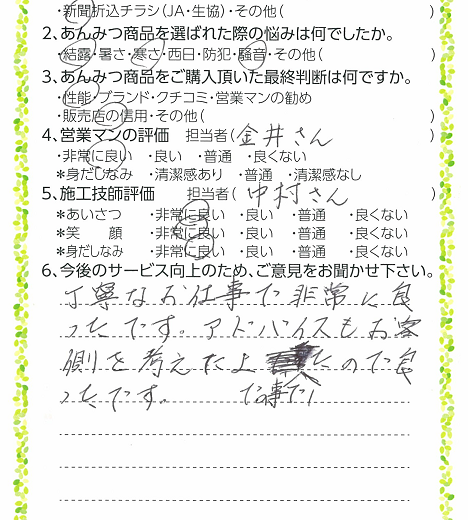 ・新聞折込チラシ(JA・生協)・その他( )
2、あんみつ商品を選ばれた際の悩みは何でしたか。
・結露・暑さ・寒さ・西日・防犯・騒音・その他( )
3、あんみつ商品をご購入頂いた最終判断は何ですか。
・性能・ブランド・クチコミ・営業マンの勧め
・販売店の信用・その他( )
4、営業マンの評価 担当者(金井さん )
・非常に良い ・良い ・普通 ・良くない
*身だしなみ ・清潔感あり ・普通 ・清潔感なし
5、施工技師評価 担当者(中村さん )
*あいさつ ・非常に良い ・良い ・普通 ・良くない
*笑 顔 ・非常に良い ・良い ・普通 ・良くない
*身だしなみ ・非常に良い ・良い ・普通 ・良くない
6、今後のサービス向上のため、ご意見をお聞かせ下さい。
丁寧なお仕事で非常に良
ったです。アドバイスもお客
側を考えた上 たので良
ったです。